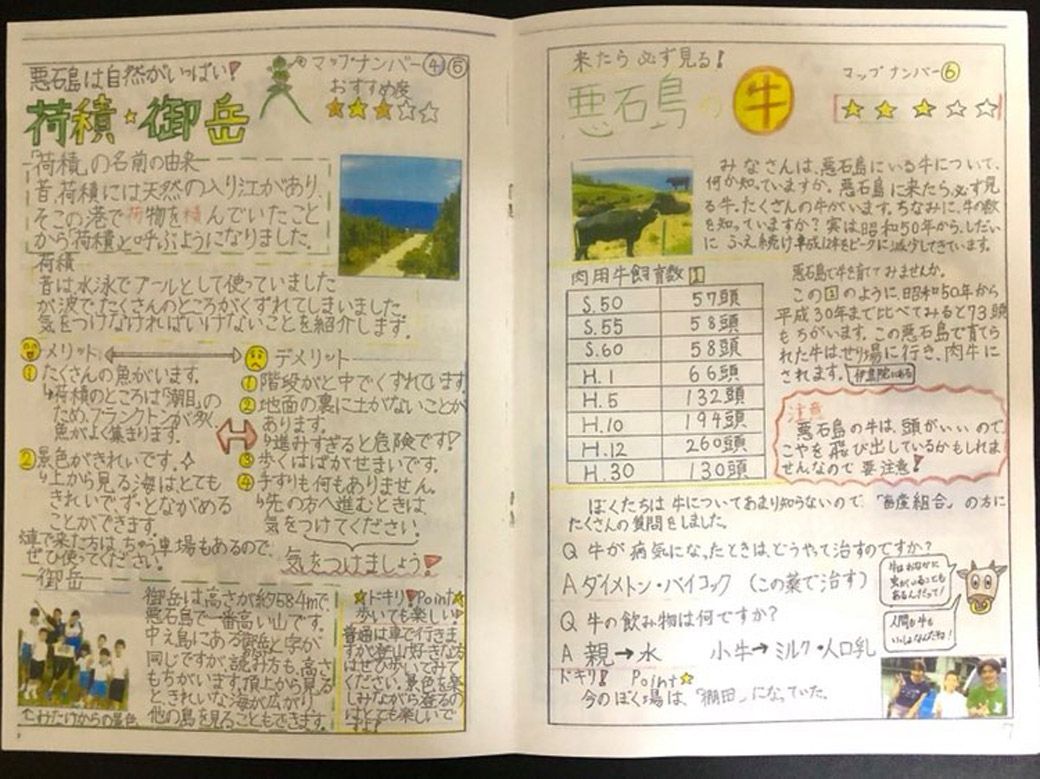 悪石島は自然がいっぱい!
マップナンバー④⑤
おすすめ度
荷積・御岳
「荷積」の名前の由来
昔、荷積には天然の入り江があり、
そこの港で荷物を積んでいたこと
から「荷積」と呼ぶようになりました。
荷積
昔は水泳でプールとして使っていました
が波でたくさんのところがくずれてしまいました。
気をつけなければいけないことを紹介します。
メリット
①たくさんの魚がいます。
↳荷積のところは「潮目」の
ため、プランクトンが多く
魚がよく集まります。
②景色がきれいです。
↳上から見る海はとても
きれいで、ずっとながめる
ことができます。
デメリット
①階段がと中でくずれています。
②地面の裏に土がないことが
あります。
↳進みすぎると危険です!
③歩くはばがせまいです。
④手すりも何もありません。
↳先の方へ進むときは、
気をつけてください。
気をつけましょう!
車で来た方は、ちゅう車場もあるので、
ぜひ使ってください。
御岳
御岳は高さが約584mで、
悪石島で一番高い山です。
中之島にある御岳と字が
同じですが、読み方も、高さ
もちがいます。頂上から見る
ときれいな海が広がり、
他の島を見ることもできます。
↑みたけからの景色
☆ドキリ!Point☆
歩いても楽しい!
普通は車で行きま
すが登山好きな方
はぜひ歩いてみて
ください。景色を楽
しみながら登るの
はとても楽しいで
すよ!
来たら必ず見る!
マップナンバー⑥
悪石島の牛
みなさんは、悪石島にいる牛について、
何か知っていますか。悪石島に来たら必ず見
る牛。たくさんの牛がいます。ちなみに、牛の数
を知っていますか?実は昭和50年から、しだい
にふえ続け平成12年をピークに減少してきています。
肉用牛飼育数 1
S.50 57頭
S.55 58頭
S.60 58頭
H.1 66頭
H.5 132頭
H.10 194頭
H.12 260頭
H.30 130頭
悪石島で牛を育ててみませんか。
この1のように、昭和50年から
平成30年まで比べてみると73頭
もちがいます。この悪石島で育てら
れた牛は、せり場に行き、肉牛に
されます。
注意
悪石島の牛は、頭がいいので、
こやを飛び出しているかもしれま
せん。なので要注意!
ぼくたちは牛についてあまり知らないので、「畜産組合」の方に
たくさんの質問をしました。
Q 牛が病気になったときは、どうやって治すのですか?
A ダイメトン・バイコック (この薬で治す)
Q 牛の飲み物は何ですか?
A 親→水 小牛→ミルク・人口乳
牛はおなかに
虫がいることも
あるんだって!
人間も牛も
いっしょなんだね!
ドキリ! Point☆
今のぼく場は、「棚田」になっていた。
7